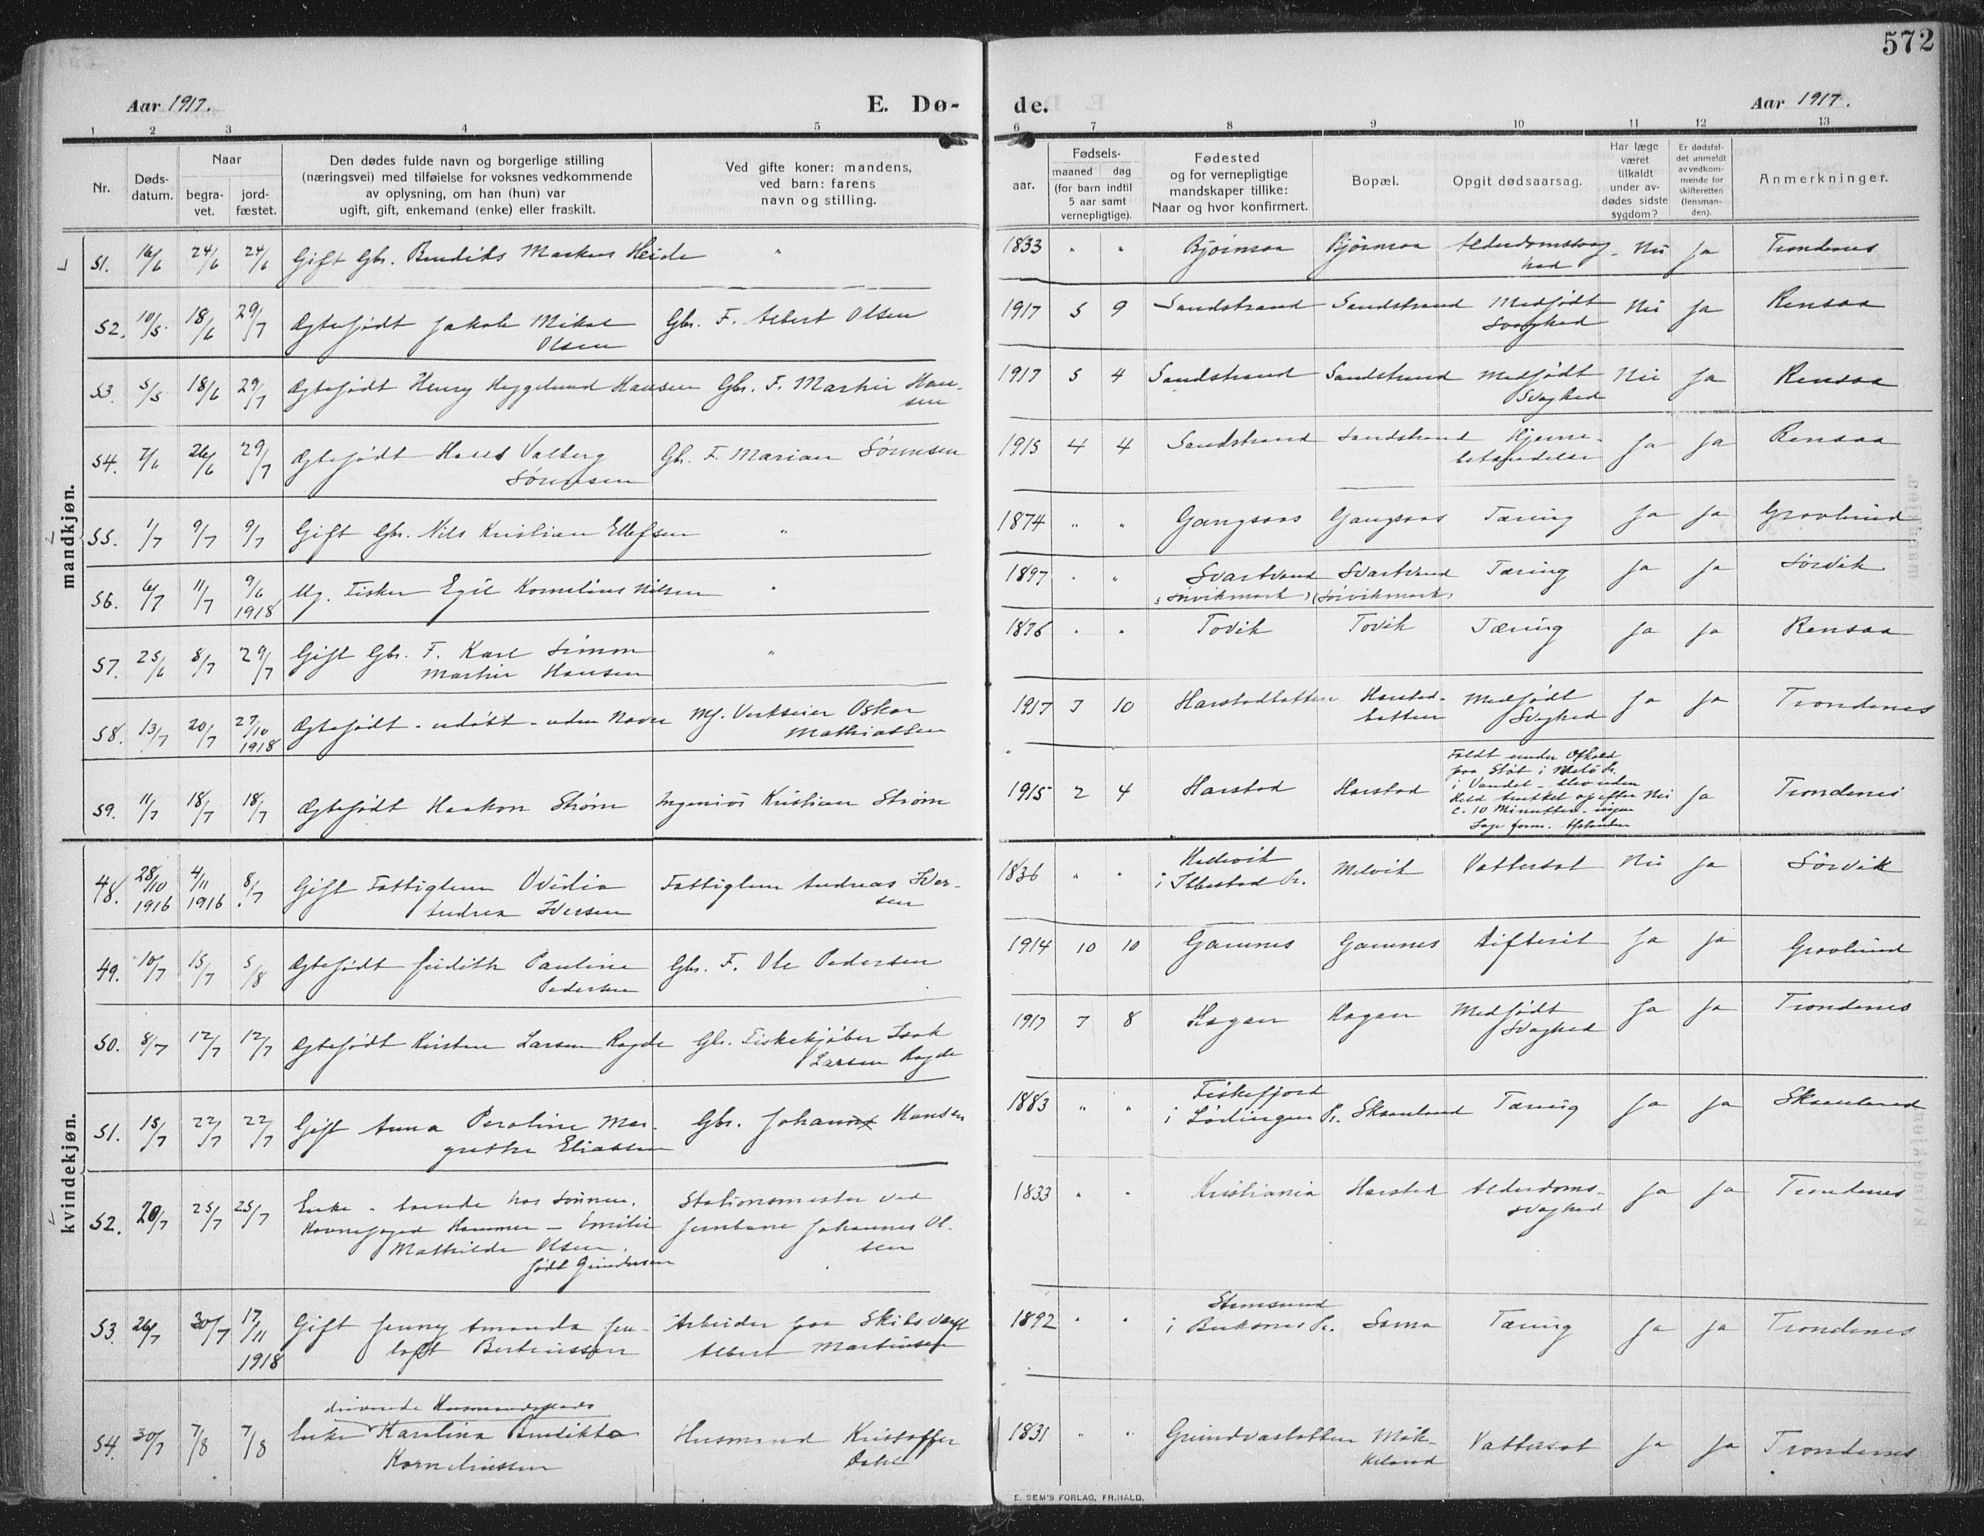 572
Aar 1917. E. Dø- de. Aar 1917.
1 2 3 4 5 6 7 8 9 10 11 12 13
Nr.
Døds-
datum.
Naar
begra-
vet.
jord-
fæstet.
Den dødes fulde navn og borgerlige stilling
(næringsvei) med tilføielse for voksnes vedkommende
av oplysning, om han (hun) var
ugift, gift, enkemand (enke) eller fraskilt.
Ved gifte koner: mandens,
ved barn: farens
navn og stilling.
Fødsels-
aar.
maaned dag
(for barn indtil
5 aar samt
vernepligtige).
Fødested
og for vernepligtige
mandskaper tillike:
Naar og hvor konfirmert.
Bopæl.
Opgit dødsaarsag.
Har læge
været
tilkaldt
under av-
dødes sidste
sygdom?
Er dødsfal-
det anmeldt
av vedkom-
mende for
skifteretten
(lensman-
den).
Anmerkninger.
mandkjøn.
51. 16/6 24/6 24/6 Gift Gbr. Bendiks Markus Heide " 1833 " " Bjørnaa Bjørnaa Alderdomssvag- Nei Ja Trondenes
hed
52. 10/5 18/6 29/7 Ægtefødt Jakob Mikal Gbr. F. Albert Olsen 1917 5 9 Sandstrand Sandstrand Medfødt Nei Ja Rensaa
Olsen Svaghed
53. 5/5 18/6 29/7 Ægtefødt Henry Heggelund Hansen Gbr. F. Martin Han- 1917 5 4 Sandstrand Sandstrand Medfødt Nei Ja Rensaa
sen Svaghed
54. 7/6 26/6 29/7 Ægtefødt Hans Valberg Gb. F. Marian Sørensen 1915 4 4 Sandstrand Sandstrand Hjerne- Ja Ja Rensaa
Sørensen betændelse
55. 1/7 9/7 9/7 Gift Gbr. Nils Kristian Ellefsen " 1874 " " Gangsaas Gangsaas Tæring Ja Ja Gravlund
56. 6/7 11/7 9/6 Ug. Fisker Egil Kornelius Nilsen " 1897 " " Svartvand Svartvand Tæring Ja Ja Sørvik
1918 (Sørvikmark) (Sørvikmark)
57. 25/6 8/7 29/7 Gift Gbr. F. Karl Simon " 1876 " " Tovik Tovik Tæring Ja Ja Rensaa
Martin Hansen
58. 13/7 20/7 27/10 Ægtefødt - udøbt - uden Navn Mf. Verkseier Oskar 1917 7 10 Harstadbotten Harstad- Medfødt Ja Ja Trondenes
1918 Mathiassen botten Svaghed
59. 11/7 18/7 18/7 Ægtefødt Haakon Strøm Ingeniør Kristian Strøm 1915 2 4 Harstad Harstad Faldt under Ophold Nei Ja Trondenes
paa Støt i Melø Pr.
i Vandet - blev uden
Held trukket op efter
c. 10 Minutter - ingen
kvindekjøn.
48. 28/10 4/11 8/7 Gift Fattiglem Ovidia Fattiglem Andreas Iver- 1836 " " i Ibbestad Pr. Melvik Vattersot Nei Ja Sørvik
1916 1916 Andrea Iversen sen
49. 10/7 15/7 5/8 Ægtefødt Judith Pauline Gbr. F. Ole Pedersen 1914 10 10 Gamnes Gamnes Difterit Ja Ja Gravlund
Pedersen
50. 8/7 12/7 12/7 Ægtefødt Kirsten Larsen Rogde Gb. Fiskekjøber Isak 1917 7 8 Hagan Hagan Medfødt Ja Ja Trondenes
Larsen Rogde Svaghed
51. 15/7 22/7 22/7 Gift Anna Peroline Mar- Gbr. Johan Hansen 1883 " " Fiskefjord Skaanland Tæring Ja Ja Skaanland
grethe Eliassen i Lødingen Pr.
52. 20/7 25/7 25/7 Enke - boende hos Sønnen, Stationsmester ved 1833 " " Kristiania Harstad Alderdoms- Ja Ja Trondenes
Havnefoged Hammer - Emilie Jernbane Johannes Ol- Svaghed
Mathilde Olsen. sen
født Gundersen
53. 26/7 30/7 17/11 Gift Jenny Amanda Jen- Arbeider paa Skibsværft 1892 " " Stamsund Sama Tæring Ja Ja Trondenes
1918 loft Berteussen Albert Martinsen i Buksnes Pr.
drivende Husmandsplads
54. 30/7 7/8 7/8 Enke Karolina Benedikta Husmand Kristoffer 1831 " " Grundvasbotten Møk- Vattersot Ja Ja Trondenes
Korneliussen Dahl keland
E. SEM'S FORLAG, FR.HALD.